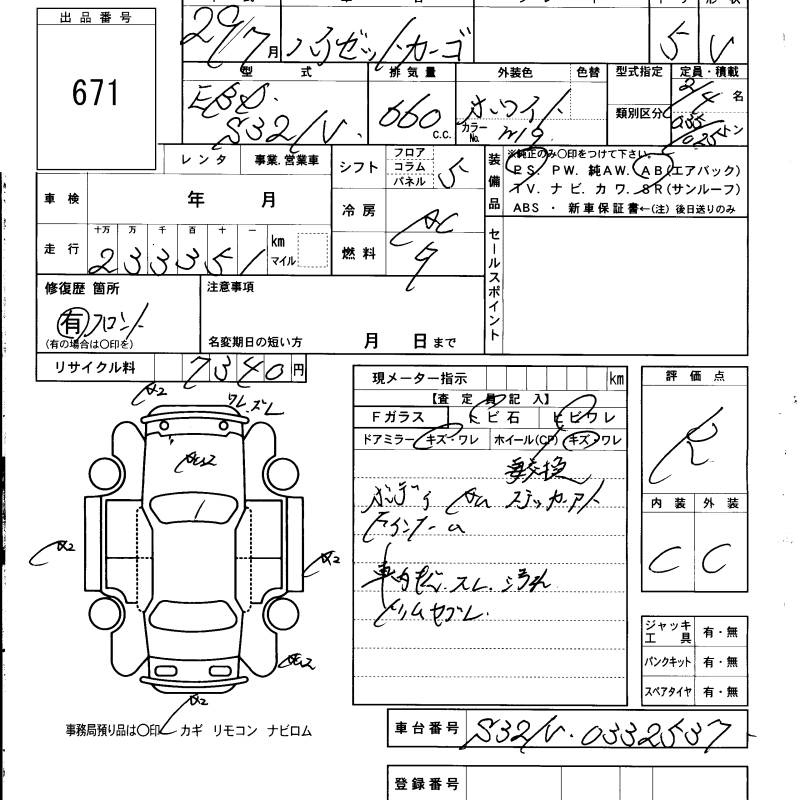 出品番号
671
29/7 月 ハイゼットカーゴ 5 V
型式 排気量 外装色 色替 型式指定 定員・積載
EBD- 660 c.c. ホワイト 類別区分 2/4 名
S321V カラーNo. W19 035/025トン
レンタ 事業.営業車 シフト フロア コラム パネル 5
装備品 ※純正のみ○印をつけて下さい。
PS. PW. 純AW. AB(エアバック)
TV. ナビ. カワ. SR(サンルーフ)
ABS ・ 新車保証書←(注) 後日送りのみ
車検 年 月 冷房 AC
走行 十万 万 千 百 十 一 km マイル 燃料
233351
セールスポイント
修復歴 箇所 注意事項
有 フロント
(有の場合は○印を) 名変期日の短い方 月 日まで
リサイクル料 7340 円
現メーター指示 km
評価点
【査定員記入】
Fガラス トビ石 ヒビワレ
ドアミラー キズ・ワレ ホイール(CP) キズ・ワレ
R
要交換
ボディ AU ステッカーアト
内装 外装
C C
車内 スレ. 汚れ
ワレ.ズレ
A2
A2
A2
A2
ジャッキ工具 有・無
パンクキット 有・無
スペアタイヤ 有・無
事務局預り品は○印 カギ リモコン ナビロム
車台番号 S321V-0332537
登録番号